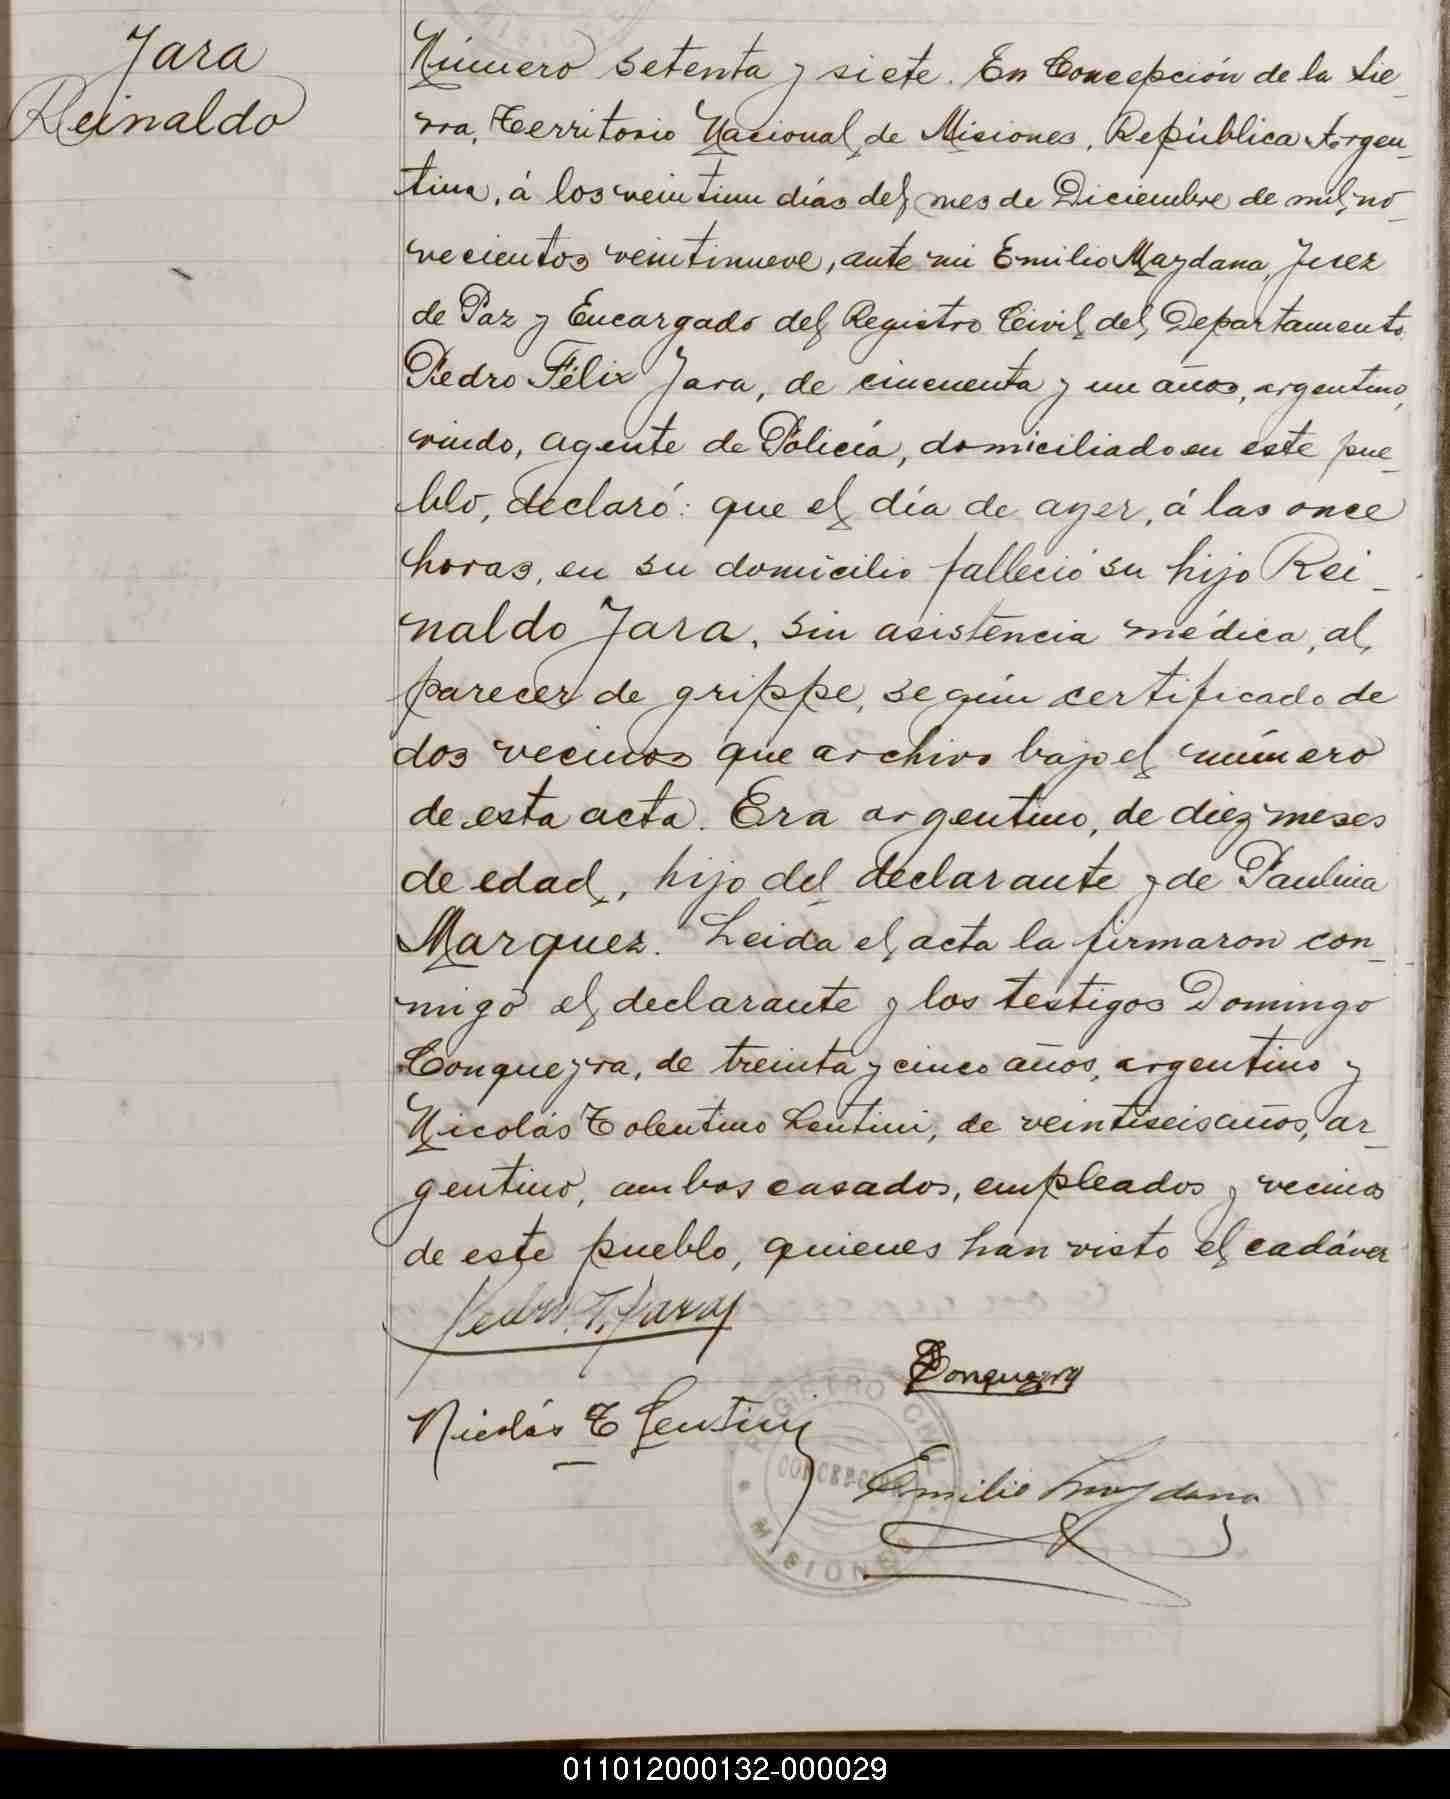 Jara
Reinaldo
Número setenta y siete. En Concepción de la Sie-
rra, Territorio Nacional de Misiones, República Argen-
tina, á los veintiun días del mes de Diciembre de mil no-
vecientos veintinueve, ante mi Emilio Maydana, Juez
de Paz y Encargado del Registro Civil del Departamento.
Pedro Félix Jara, de cincuenta y un años, argentino,
viudo, agente de Policía, domiciliado en este pue-
blo, declaró: que el día de ayer, á las once
horas, en su domicilio falleció su hijo Rei-
naldo Jara, sin asistencia médica, al
parecer de grippe, según certificado de
dos vecinos que archivo bajo el número
de esta acta. Era argentino, de diez meses
de edad, hijo del declarante y de Paulina
Marquez. Leida el acta la firmaron con-
migo el declarante y los testigos Domingo
Conqueyra, de treinta y cinco años, argentino y
Nicolás Tolentino Lentini, de veintiseis años, ar-
gentino, ambos casados, empleados y vecinos
de este pueblo, quienes han visto el cadáver
Pedro F. Jara
Conqueyra
Nicolás T Lentini
REGISTRO CIVIL
CONCEPCION
MISIONES
Emilio Maydana
011012000132-000029